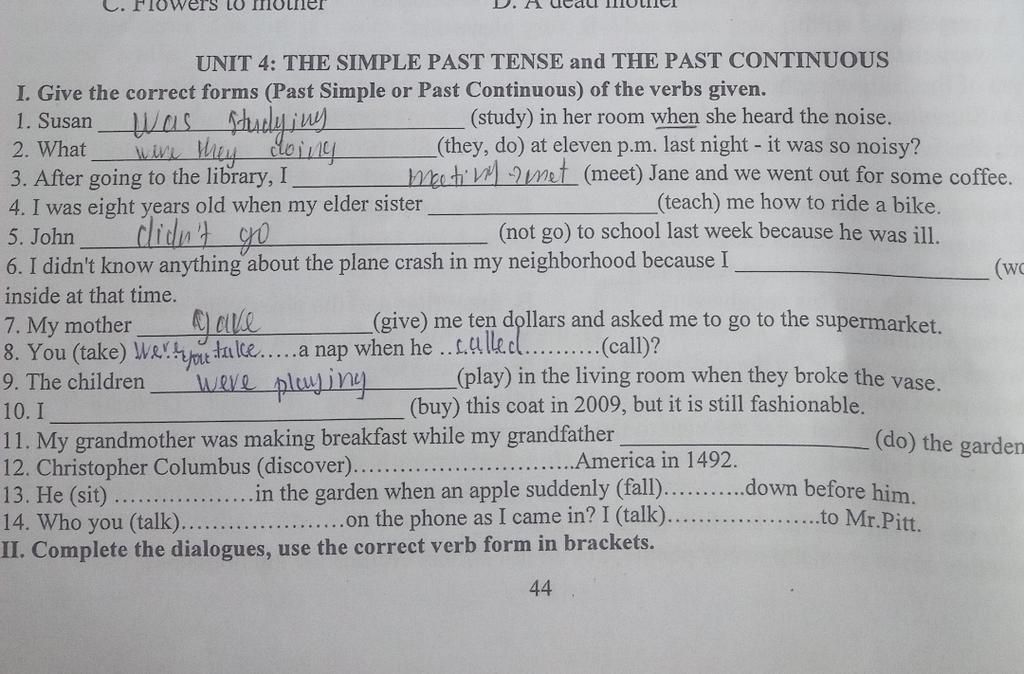 C. Flowers to mother D. A dead mother
UNIT 4: THE SIMPLE PAST TENSE and THE PAST CONTINUOUS
I. Give the correct forms (Past Simple or Past Continuous) of the verbs given.
1. Susan was studying (study) in her room when she heard the noise.
2. What were they doing (they, do) at eleven p.m. last night - it was so noisy?
3. After going to the library, I meeting → met (meet) Jane and we went out for some coffee.
4. I was eight years old when my elder sister ____________________ (teach) me how to ride a bike.
5. John didn't go (not go) to school last week because he was ill.
6. I didn't know anything about the plane crash in my neighborhood because I ____________________ (wo
inside at that time.
7. My mother gave (give) me ten dollars and asked me to go to the supermarket.
8. You (take) were you take.....a nap when he ..called..........(call)?
9. The children were playing (play) in the living room when they broke the vase.
10. I ____________________ (buy) this coat in 2009, but it is still fashionable.
11. My grandmother was making breakfast while my grandfather ____________________ (do) the garden
12. Christopher Columbus (discover)............................America in 1492.
13. He (sit) .................in the garden when an apple suddenly (fall)..........down before him.
14. Who you (talk)....................on the phone as I came in? I (talk)...................to Mr.Pitt.
II. Complete the dialogues, use the correct verb form in brackets.
44